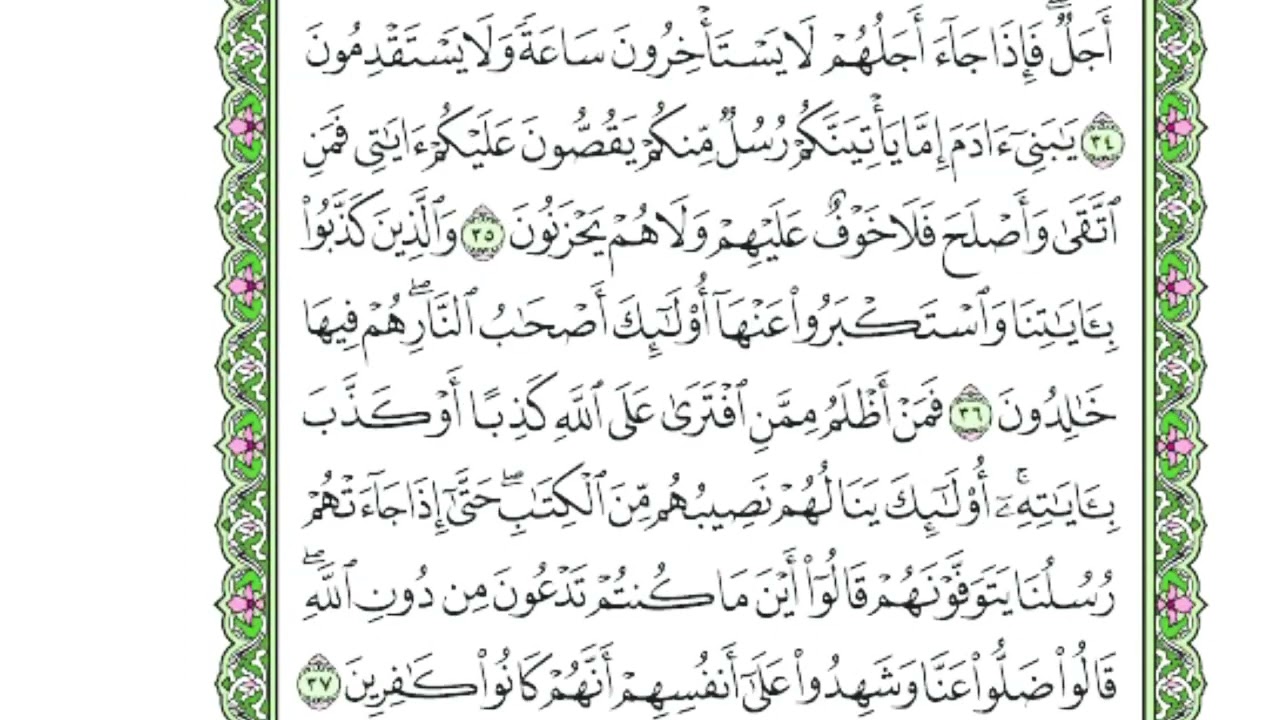 أَجَلٌۖ فَإِذَا جَآءَ أَجَلُهُمۡ لَا يَسۡتَأۡخِرُونَ سَاعَةٗ وَلَا يَسۡتَقۡدِمُونَ
٣٤ يَٰبَنِيٓ ءَادَمَ إِمَّا يَأۡتِيَنَّكُمۡ رُسُلٞ مِّنكُمۡ يَقُصُّونَ عَلَيۡكُمۡ ءَايَٰتِي فَمَنِ
ٱتَّقَىٰ وَأَصۡلَحَ فَلَا خَوۡفٌ عَلَيۡهِمۡ وَلَا هُمۡ يَحۡزَنُونَ ٣٥ وَٱلَّذِينَ كَذَّبُواْ
بِـَٔايَٰتِنَا وَٱسۡتَكۡبَرُواْ عَنۡهَآ أُوْلَٰٓئِكَ أَصۡحَٰبُ ٱلنَّارِۖ هُمۡ فِيهَا
خَٰلِدُونَ ٣٦ فَمَنۡ أَظۡلَمُ مِمَّنِ ٱفۡتَرَىٰ عَلَى ٱللَّهِ كَذِبًا أَوۡ كَذَّبَ
بِـَٔايَٰتِهِۦٓۚ أُوْلَٰٓئِكَ يَنَالُهُمۡ نَصِيبُهُم مِّنَ ٱلۡكِتَٰبِۖ حَتَّىٰٓ إِذَا جَآءَتۡهُمۡ
رُسُلُنَا يَتَوَفَّوۡنَهُمۡ قَالُوٓاْ أَيۡنَ مَا كُنتُمۡ تَدۡعُونَ مِن دُونِ ٱللَّهِۖ
قَالُواْ ضَلُّواْ عَنَّا وَشَهِدُواْ عَلَىٰٓ أَنفُسِهِمۡ أَنَّهُمۡ كَانُواْ كَٰفِرِينَ ٣٧